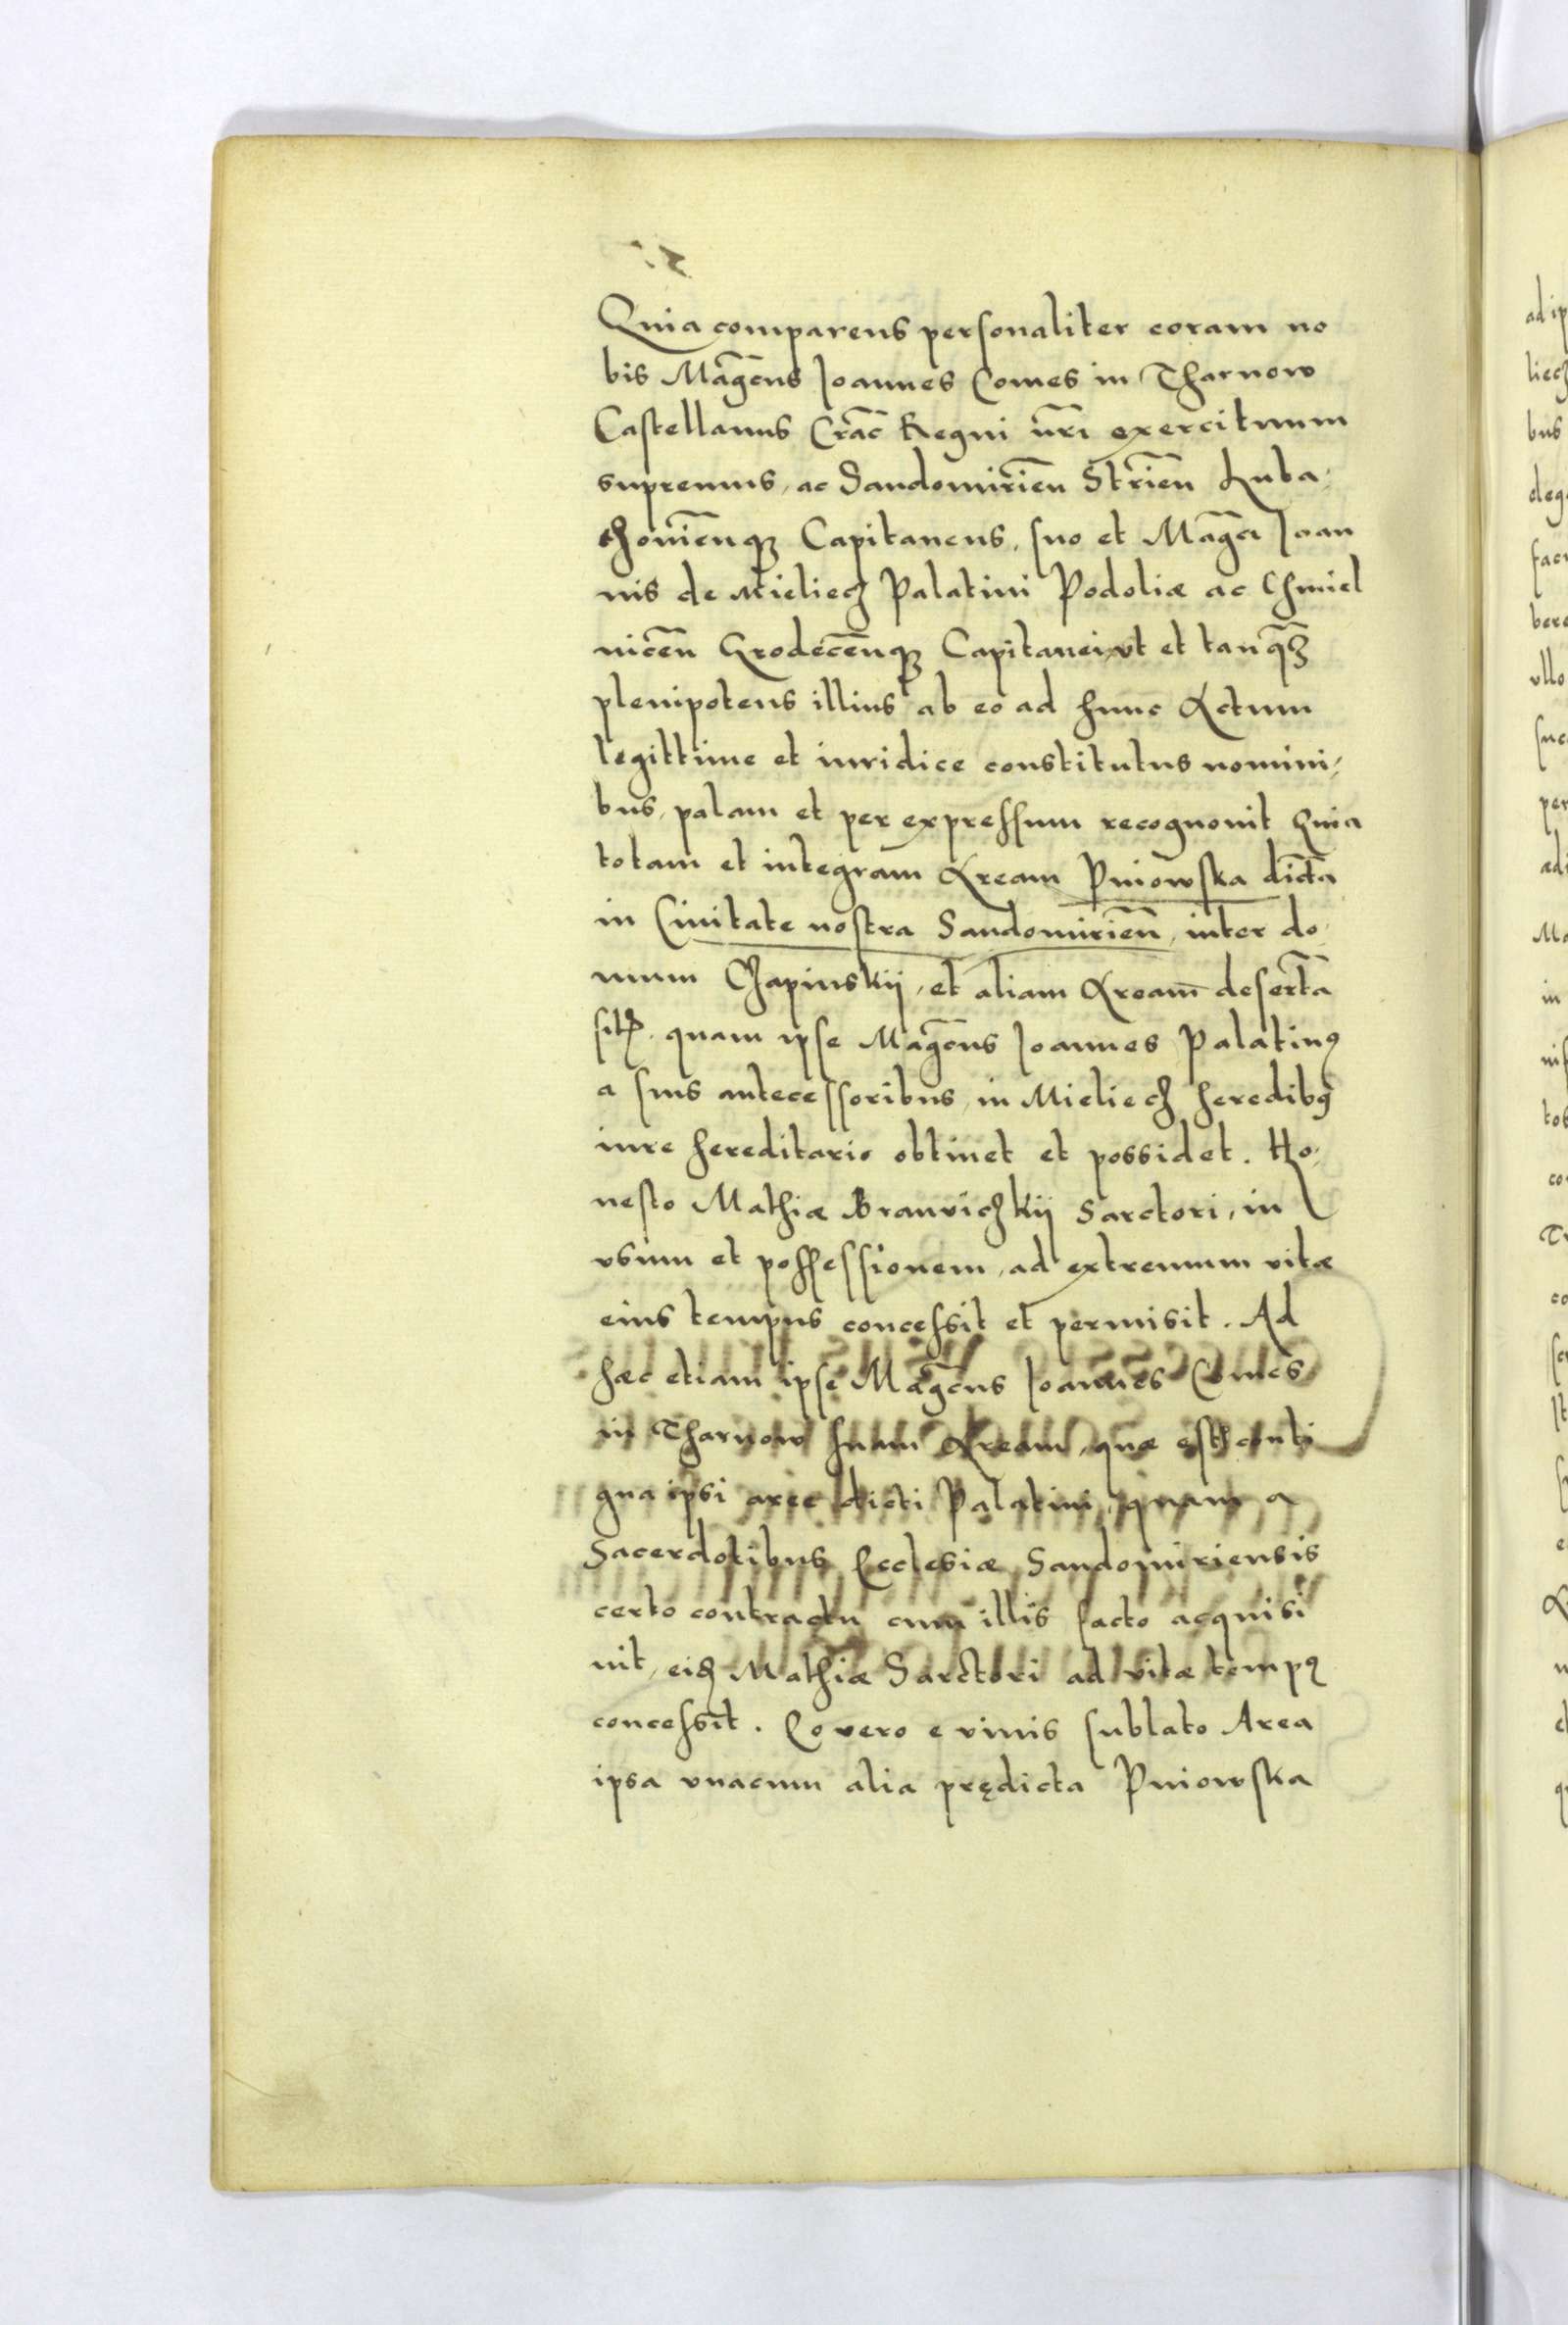 Quia comparens personaliter coram no
bis Magcus Joannes Comes in Tharnow
Castellanus Crac Regni nri exercituum
supremus, ac Sandomirien Strien Luba,
chouienq3 Capitaneus, suo et Magci Joan
nis de Mieliecz Palatini Podoliæ ac Chmiel
nicen Grodecenq3 Capitanei, vt et tanq3
plenipotens illius ab eo ad hunc Actum
legittime et iuridice constitutus nomini,
bus, palam et per expressum recognouit Quia
totam et integram Aream Pniowska dicta
in Ciuitate nostra Sandomirien, inter do,
mum Czapinskij, et aliam Aream deserta
sit, quam ipse Magcus Joannes Palatin9
a suis antecessoribus, in Mieliecz heredib9
iure hereditario obtinet et possidet. Ho,
nesto Mathiæ Branviczkij Sarctori, in
vsum et possessionem, ad extremum vitæ
eius tempus concessit et permisit. Ad
hæc etiam ipse Magcus Joannes Comes
in Tharnow suam Aream, quæ est conti
gua ipsi aree dicti Palatini, quam a
Sacerdotibus Ecclesiæ Sandomiriensis
certo contractu cum illis facto acquisi
uit, eid Mathiæ Sarctori ad vitæ temp9
concessit. Eo vero e viuis sublato Area
ipsa vnacum alia prędicta Pniowska